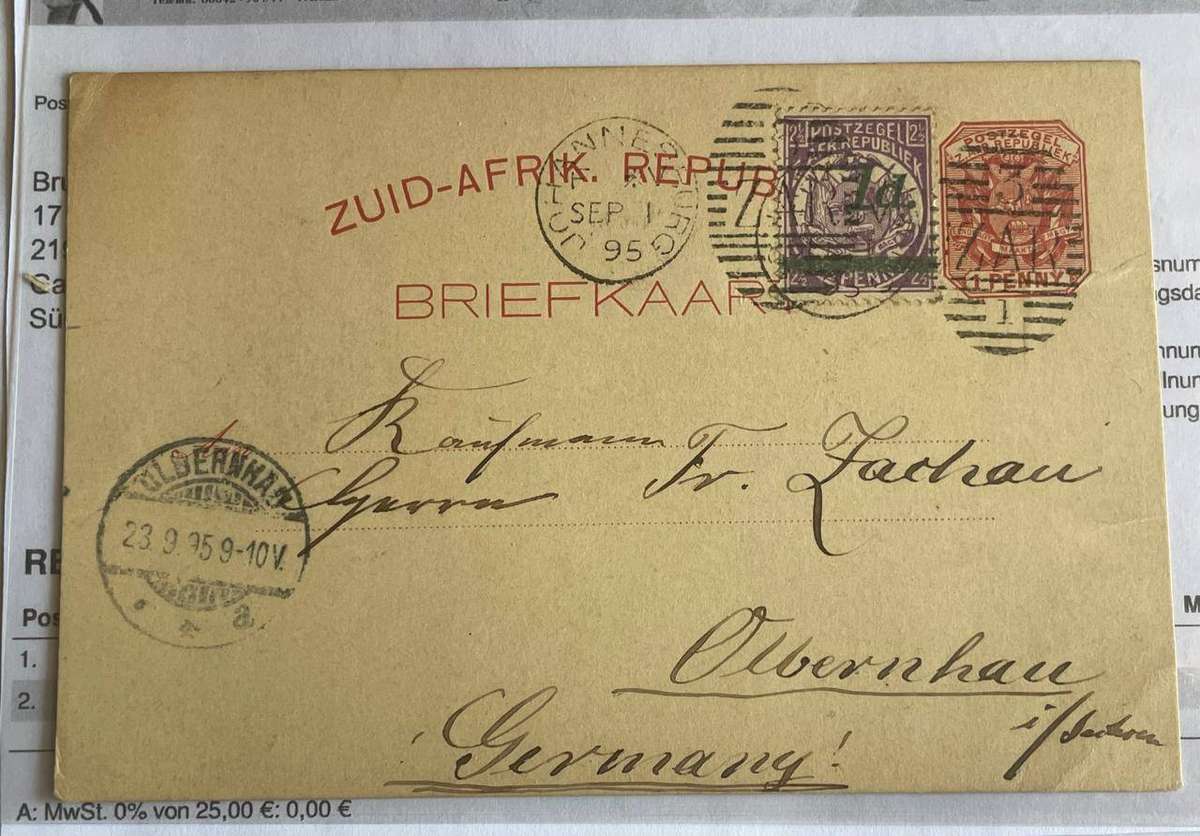 Pos
Bru
17
219
Ca
Sü
ZUID-AFRIK. REPUB
BRIEFKAART
JOHANNESBURG
SEP 1
95
2½ POSTZEGEL 2½
ZER. REPUBLIEK
1d.
PENNY
2½
POSTZEGEL
Z. AFR. REPUBLIEK
3
ZAR
1 PENNY
1
Kaufmann
Herrn Fr. Zachau
OLBERNHAU
23.9.95 9-10 V.
a
Olbernhau
i/Sachsen
Germany!
snum
gsda
nnum
lnun
ung
RE
Pos M
1.
2.
A: MwSt. 0% von 25,00 €: 0,00 €